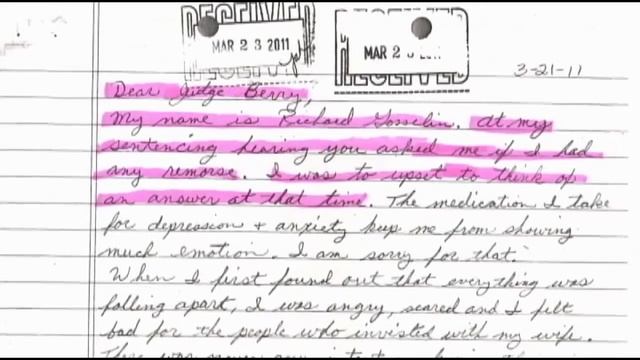 RECEIVED RECEIVED
MAR 23 2011 MAR 23 2011
RECEIVED RECEIVED
3-21-11
Dear Judge Berry,
My name is Richard Gosselin. At my
sentencing hearing you asked me if I had
any remorse. I was to upset to think of
an answer at that time. The medication I take
for depression + anxiety keep me from showing
much emotion. I am sorry for that.
When I first found out that everything was
falling apart, I was angry, scared and I felt
bad for the people who invisted with my wife.
There was never any